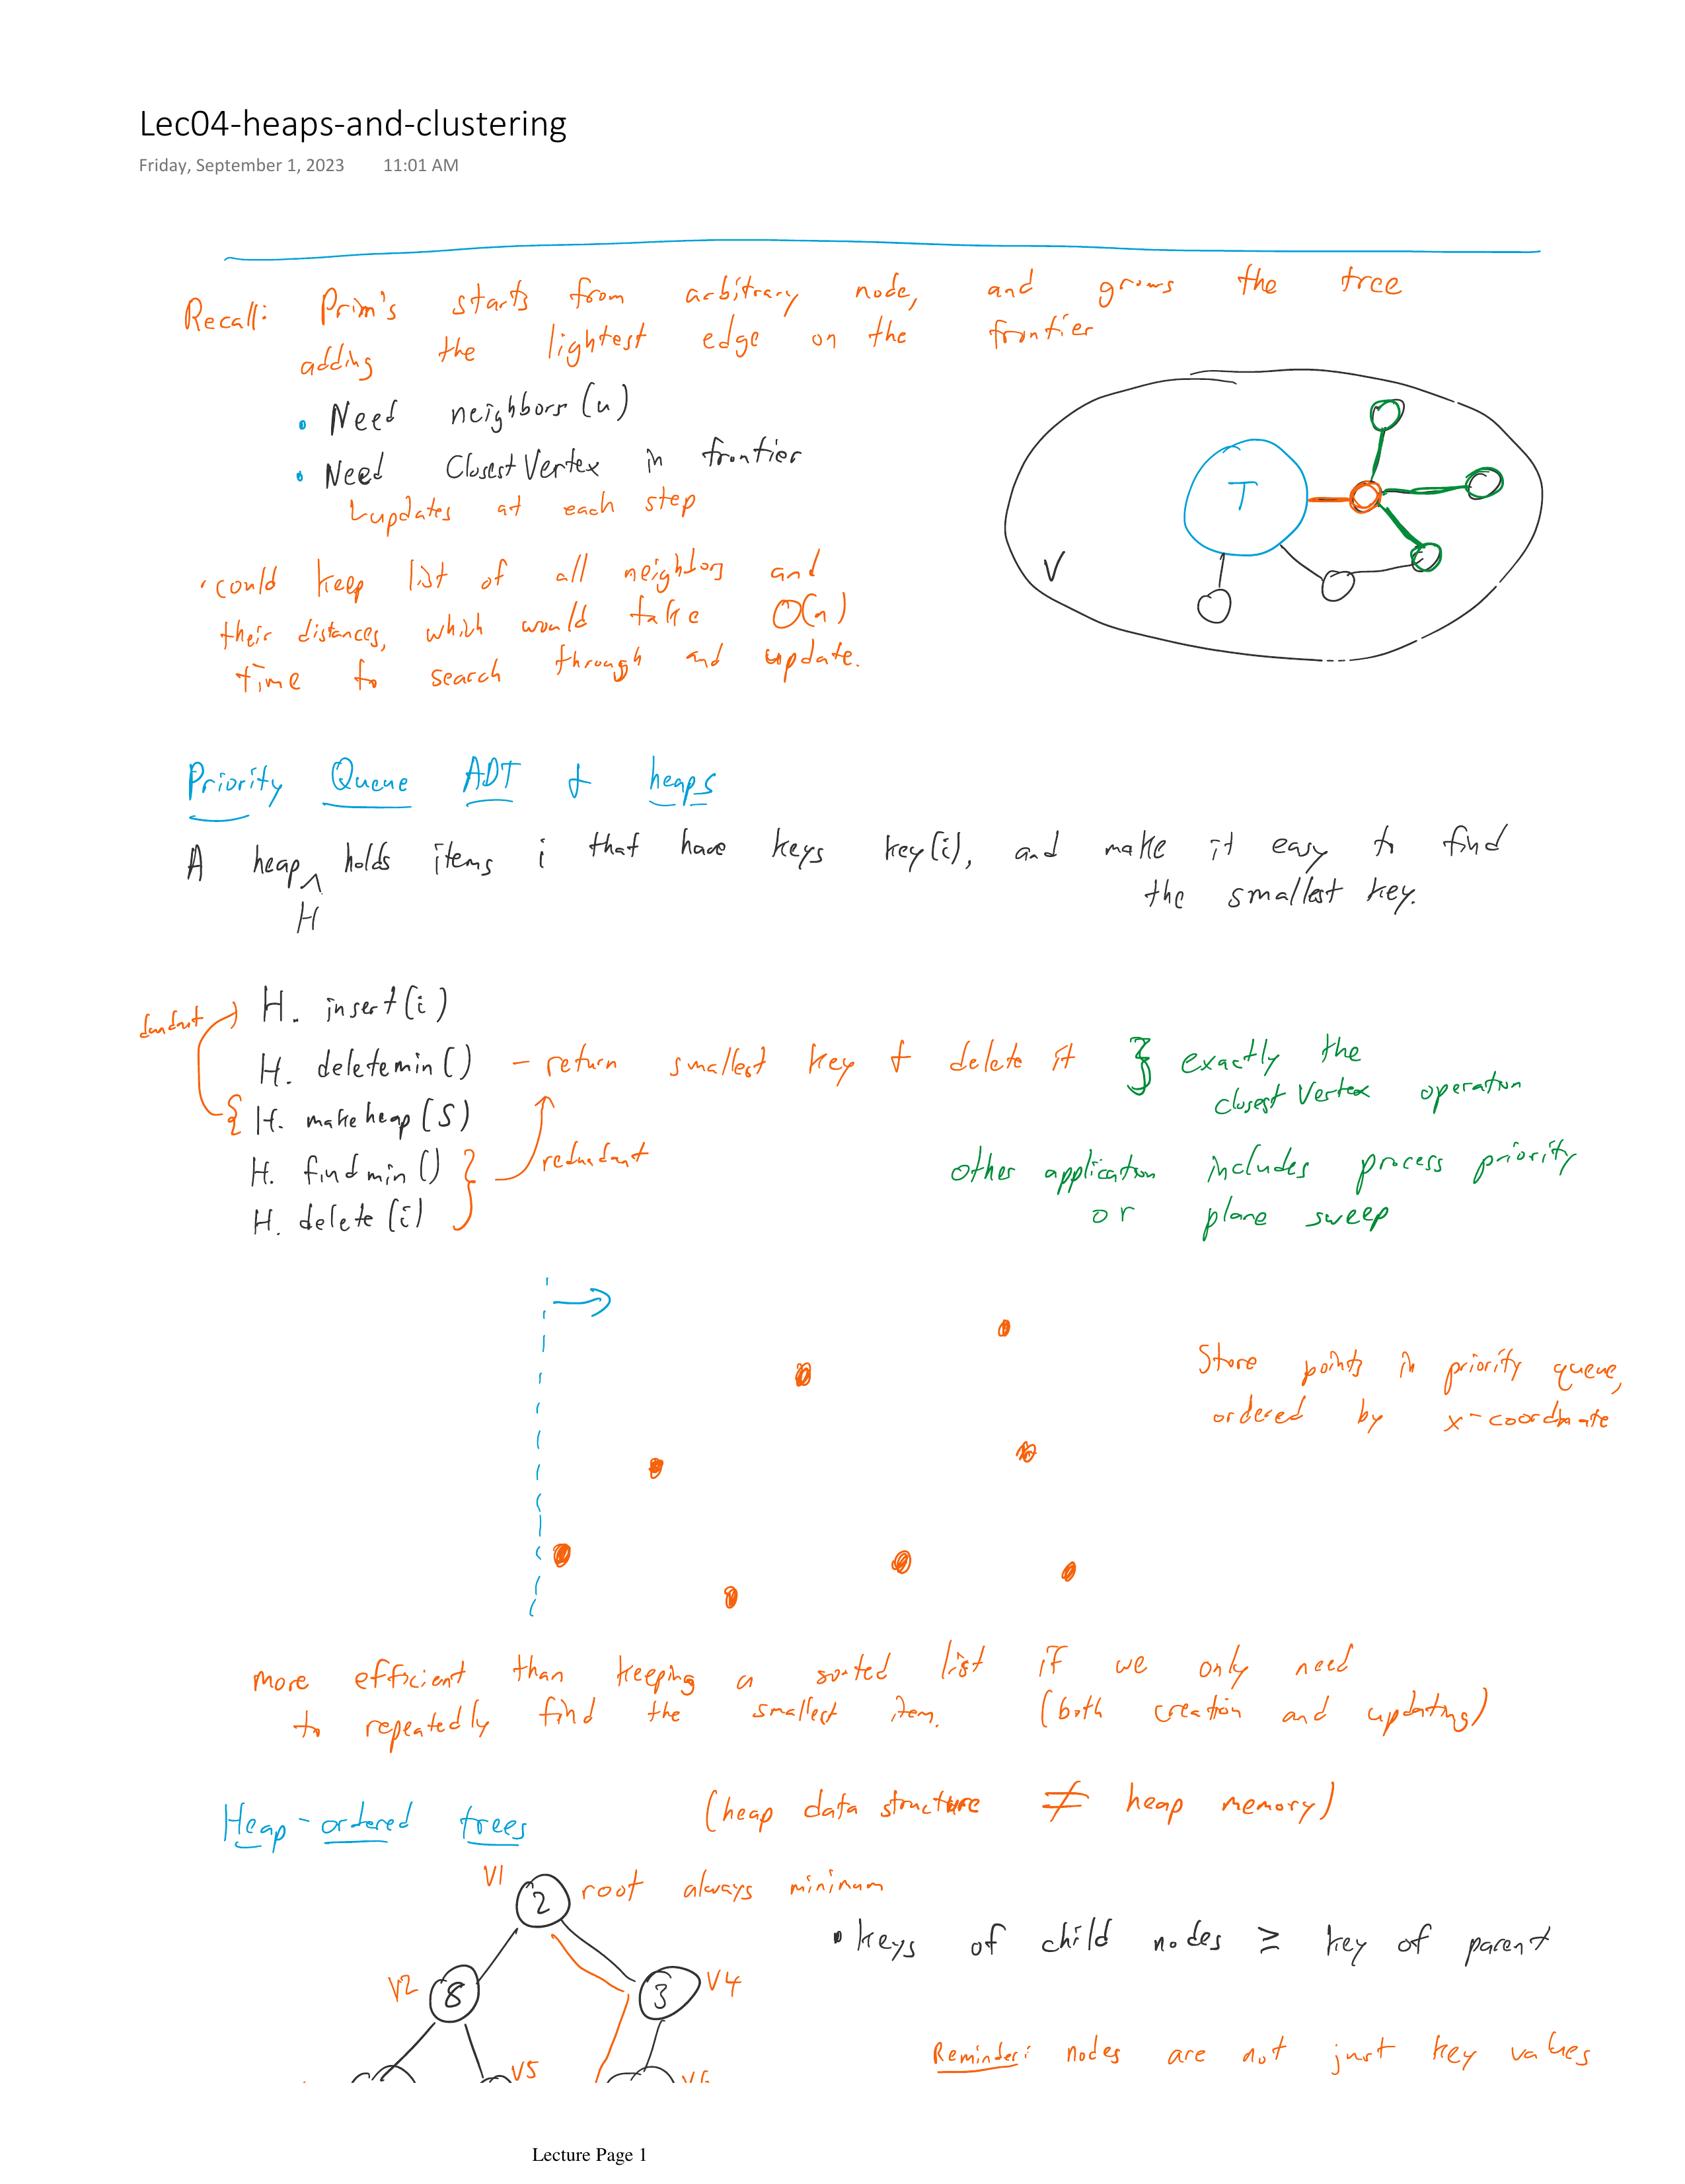 Lec04-heaps-and-clustering
Friday, September 1, 2023 11:01 AM
Recall: Prim's starts from arbitrary node, and grows the tree
adding the lightest edge on the frontier
• Need neighbors(u)
• Need Closest Vertex in frontier
updates at each step
T
V
• could keep list of all neighbors and
their distances, which would take O(n)
time to search through and update.
Priority Queue ADT & heaps
A heap ^ holds items i that have keys key(i), and make it easy to find
H
the smallest key.
H. insert(i)
H. deletemin() - return smallest key & delete it } exactly the
closest Vertex operation
{ H. makeheap(S)
H. findmin() } redundant
H. delete(i)
other application includes process priority
or plane sweep
Store points in priority queue,
ordered by x-coordinate
more efficient than keeping a sorted list if we only need
to repeatedly find the smallest item. (both creation and updating)
Heap-ordered trees (heap data structure ≠ heap memory)
V1 2 root always minimum
• keys of child nodes ≥ key of parent
V2 8 3 V4
Reminder: nodes are not just key values
V5 V6
Lecture Page 1